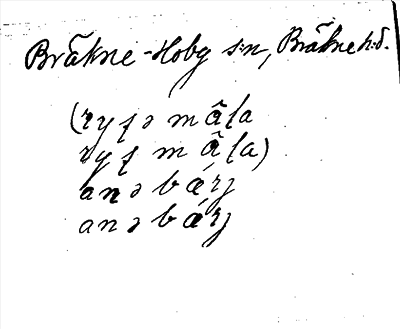 Bräkne-Hoby s:n, Bräkne h:d.
(ryʂə mâla
ryʂ mâla)
anə bǽrj
anə bǽrj